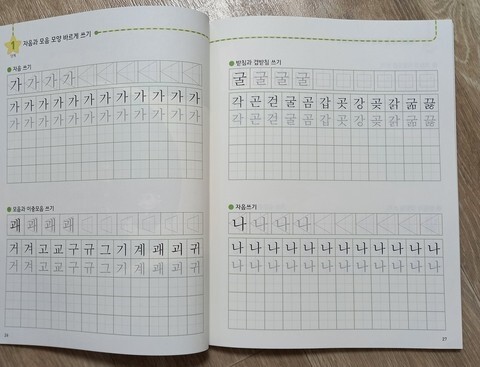 1 자음과 모음 모양 바르게 쓰기
단계
자음 쓰기
가 가 가 가
가 가 가 가 가 가 가 가 가 가 가 가
가 가 가 가 가 가 가 가 가 가 가 가
모음과 이중모음 쓰기
괘 괘 괘 괘
거 겨 고 교 구 규 그 기 계 괘 괴 귀
거 겨 고 교 구 규 그 기 계 괘 괴 귀
26
받침과 겹받침 쓰기
굴 굴 굴 굴
각 곤 걷 굴 곰 갑 곳 강 곶 갉 굶 끓
각 곤 걷 굴 곰 갑 곳 강 곶 갉 굶 끓
자음쓰기
나 나 나 나
나 나 나 나 나 나 나 나 나 나 나 나
나 나 나 나 나 나 나 나 나 나 나 나
27